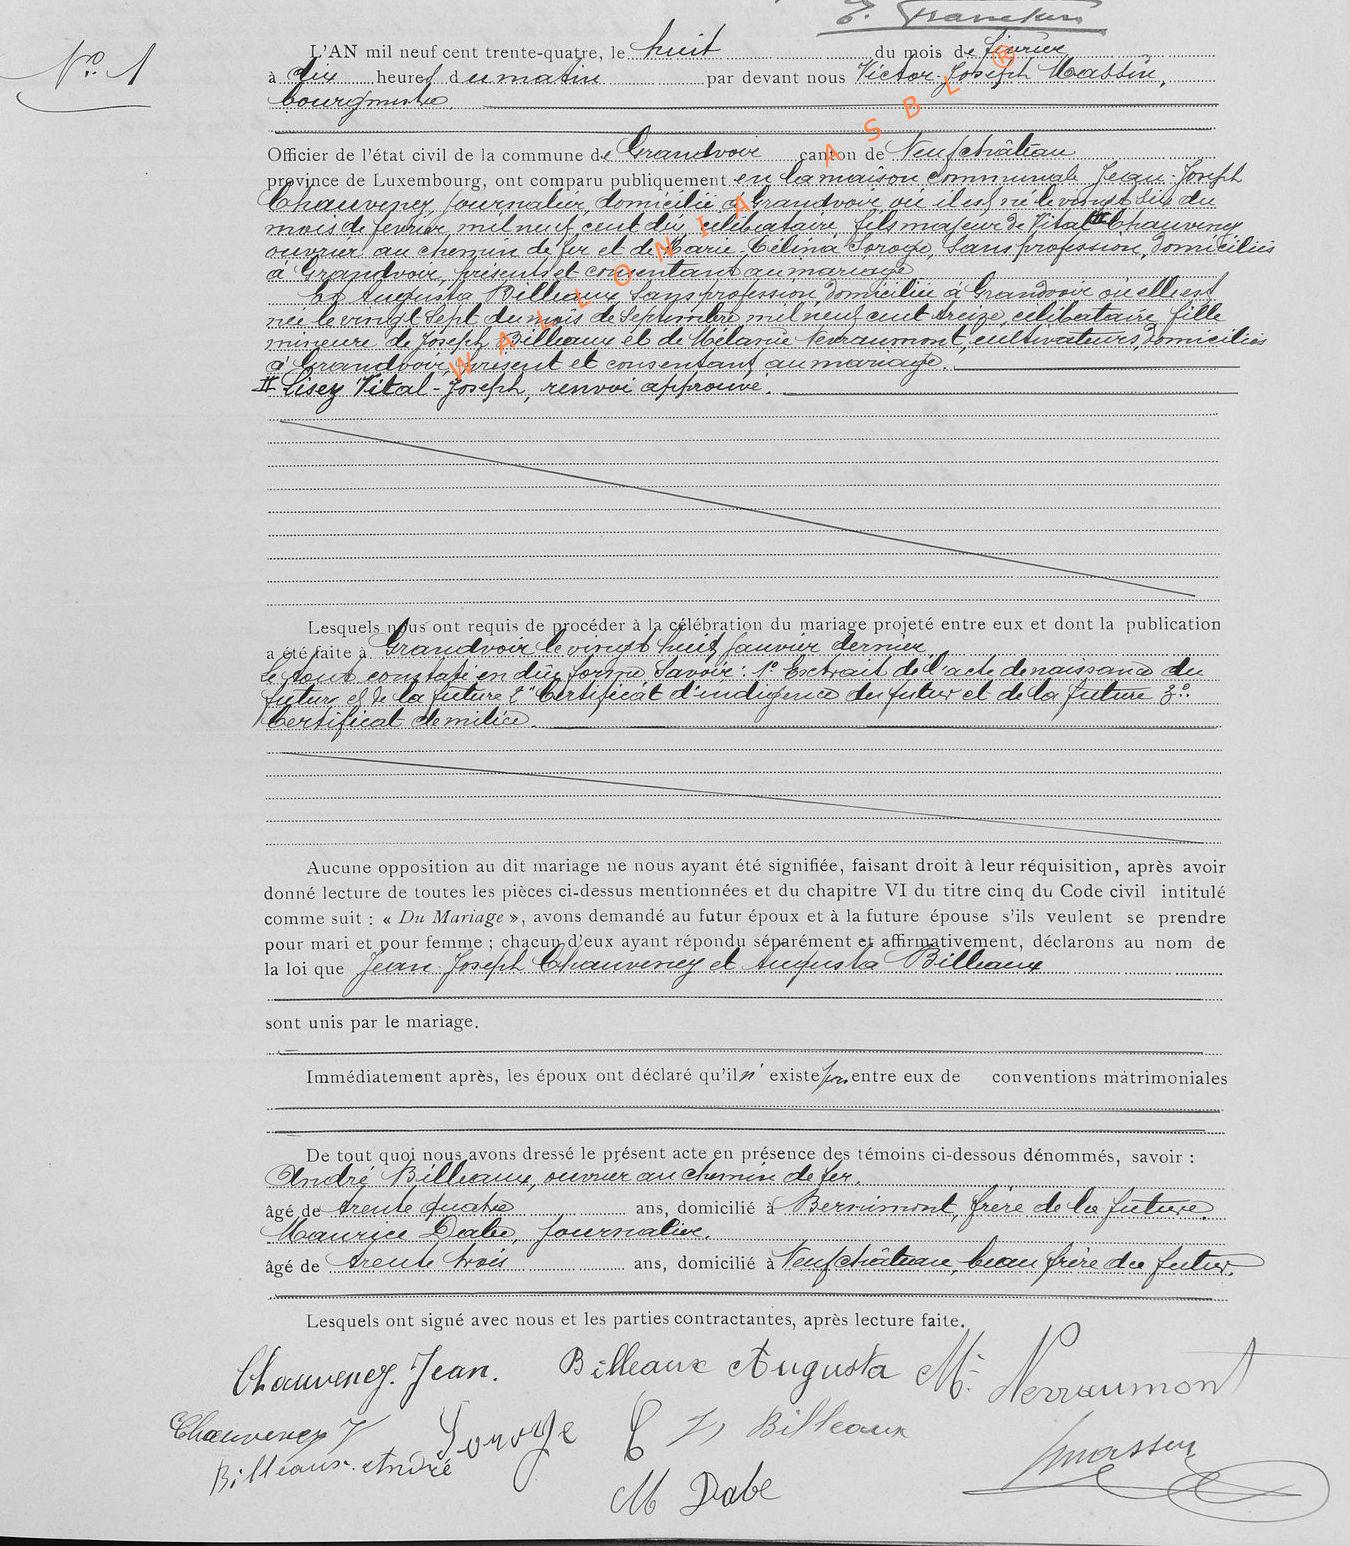 N° 1
L'AN mil neuf cent trente-quatre, le huit du mois de février
à dix heures du matin par devant nous Victor-Joseph Massin,
bourgmestre.
Officier de l'état civil de la commune de Grandvoir canton de Neufchâteau
province de Luxembourg, ont comparu publiquement en la maison communale Jean-Joseph
Chauvency, journalier, domicilié à Grandvoir où il est né le vingt six du
mois de février, mil neuf cent dix, célibataire, fils majeur de Vital Chauvency
ouvrier au chemin de fer et de Marie, Célina Soroge, sans profession, domiciliés
à Grandvoir, présents et consentant au mariage
Et Augusta Billeaux, sans profession, domiciliée à Grandvoir où elle est
née le vingt sept du mois de Septembre mil neuf cent treize, célibataire, fille
mineure de Joseph Billeaux et de Mélanie Nerraumont, cultivateurs, domiciliés
à Grandvoir, présent et consentant au mariage.
Lisez Vital-Joseph, renvoi approuvé.
WALLONIA ASBL ®
Lesquels nous ont requis de procéder à la célébration du mariage projeté entre eux et dont la publication
a été faite à Grandvoir le vingt huit janvier dernier.
Le tout constaté en due forme savoir: 1° Extrait de l'acte de naissance du
futur et de la future 2° Certificat d'indigence du futur et de la future 3°:
Certificat de milice.
Aucune opposition au dit mariage ne nous ayant été signifiée, faisant droit à leur réquisition, après avoir
donné lecture de toutes les pièces ci-dessus mentionnées et du chapitre VI du titre cinq du Code civil intitulé
comme suit : « Du Mariage », avons demandé au futur époux et à la future épouse s'ils veulent se prendre
pour mari et pour femme ; chacun d'eux ayant répondu séparément et affirmativement, déclarons au nom de
la loi que Jean-Joseph Chauvency et Augusta Billeaux
sont unis par le mariage.
Immédiatement après, les époux ont déclaré qu'il n'existe pas entre eux de conventions matrimoniales
De tout quoi nous avons dressé le présent acte en présence des témoins ci-dessous dénommés, savoir :
André Billeaux, ouvrier au chemin de fer.
âgé de trente quatre ans, domicilié à Bernimont, frère de la future.
Maurice Dabe, journalier.
âgé de trente trois ans, domicilié à Neufchâteau, beau frère du futur.
Lesquels ont signé avec nous et les parties contractantes, après lecture faite.
Chauvency. Jean. Billeaux Augusta M. Nerraumont
Chauvency V Soroge C J Billeaux
Billeaux André Massin
M Dabe